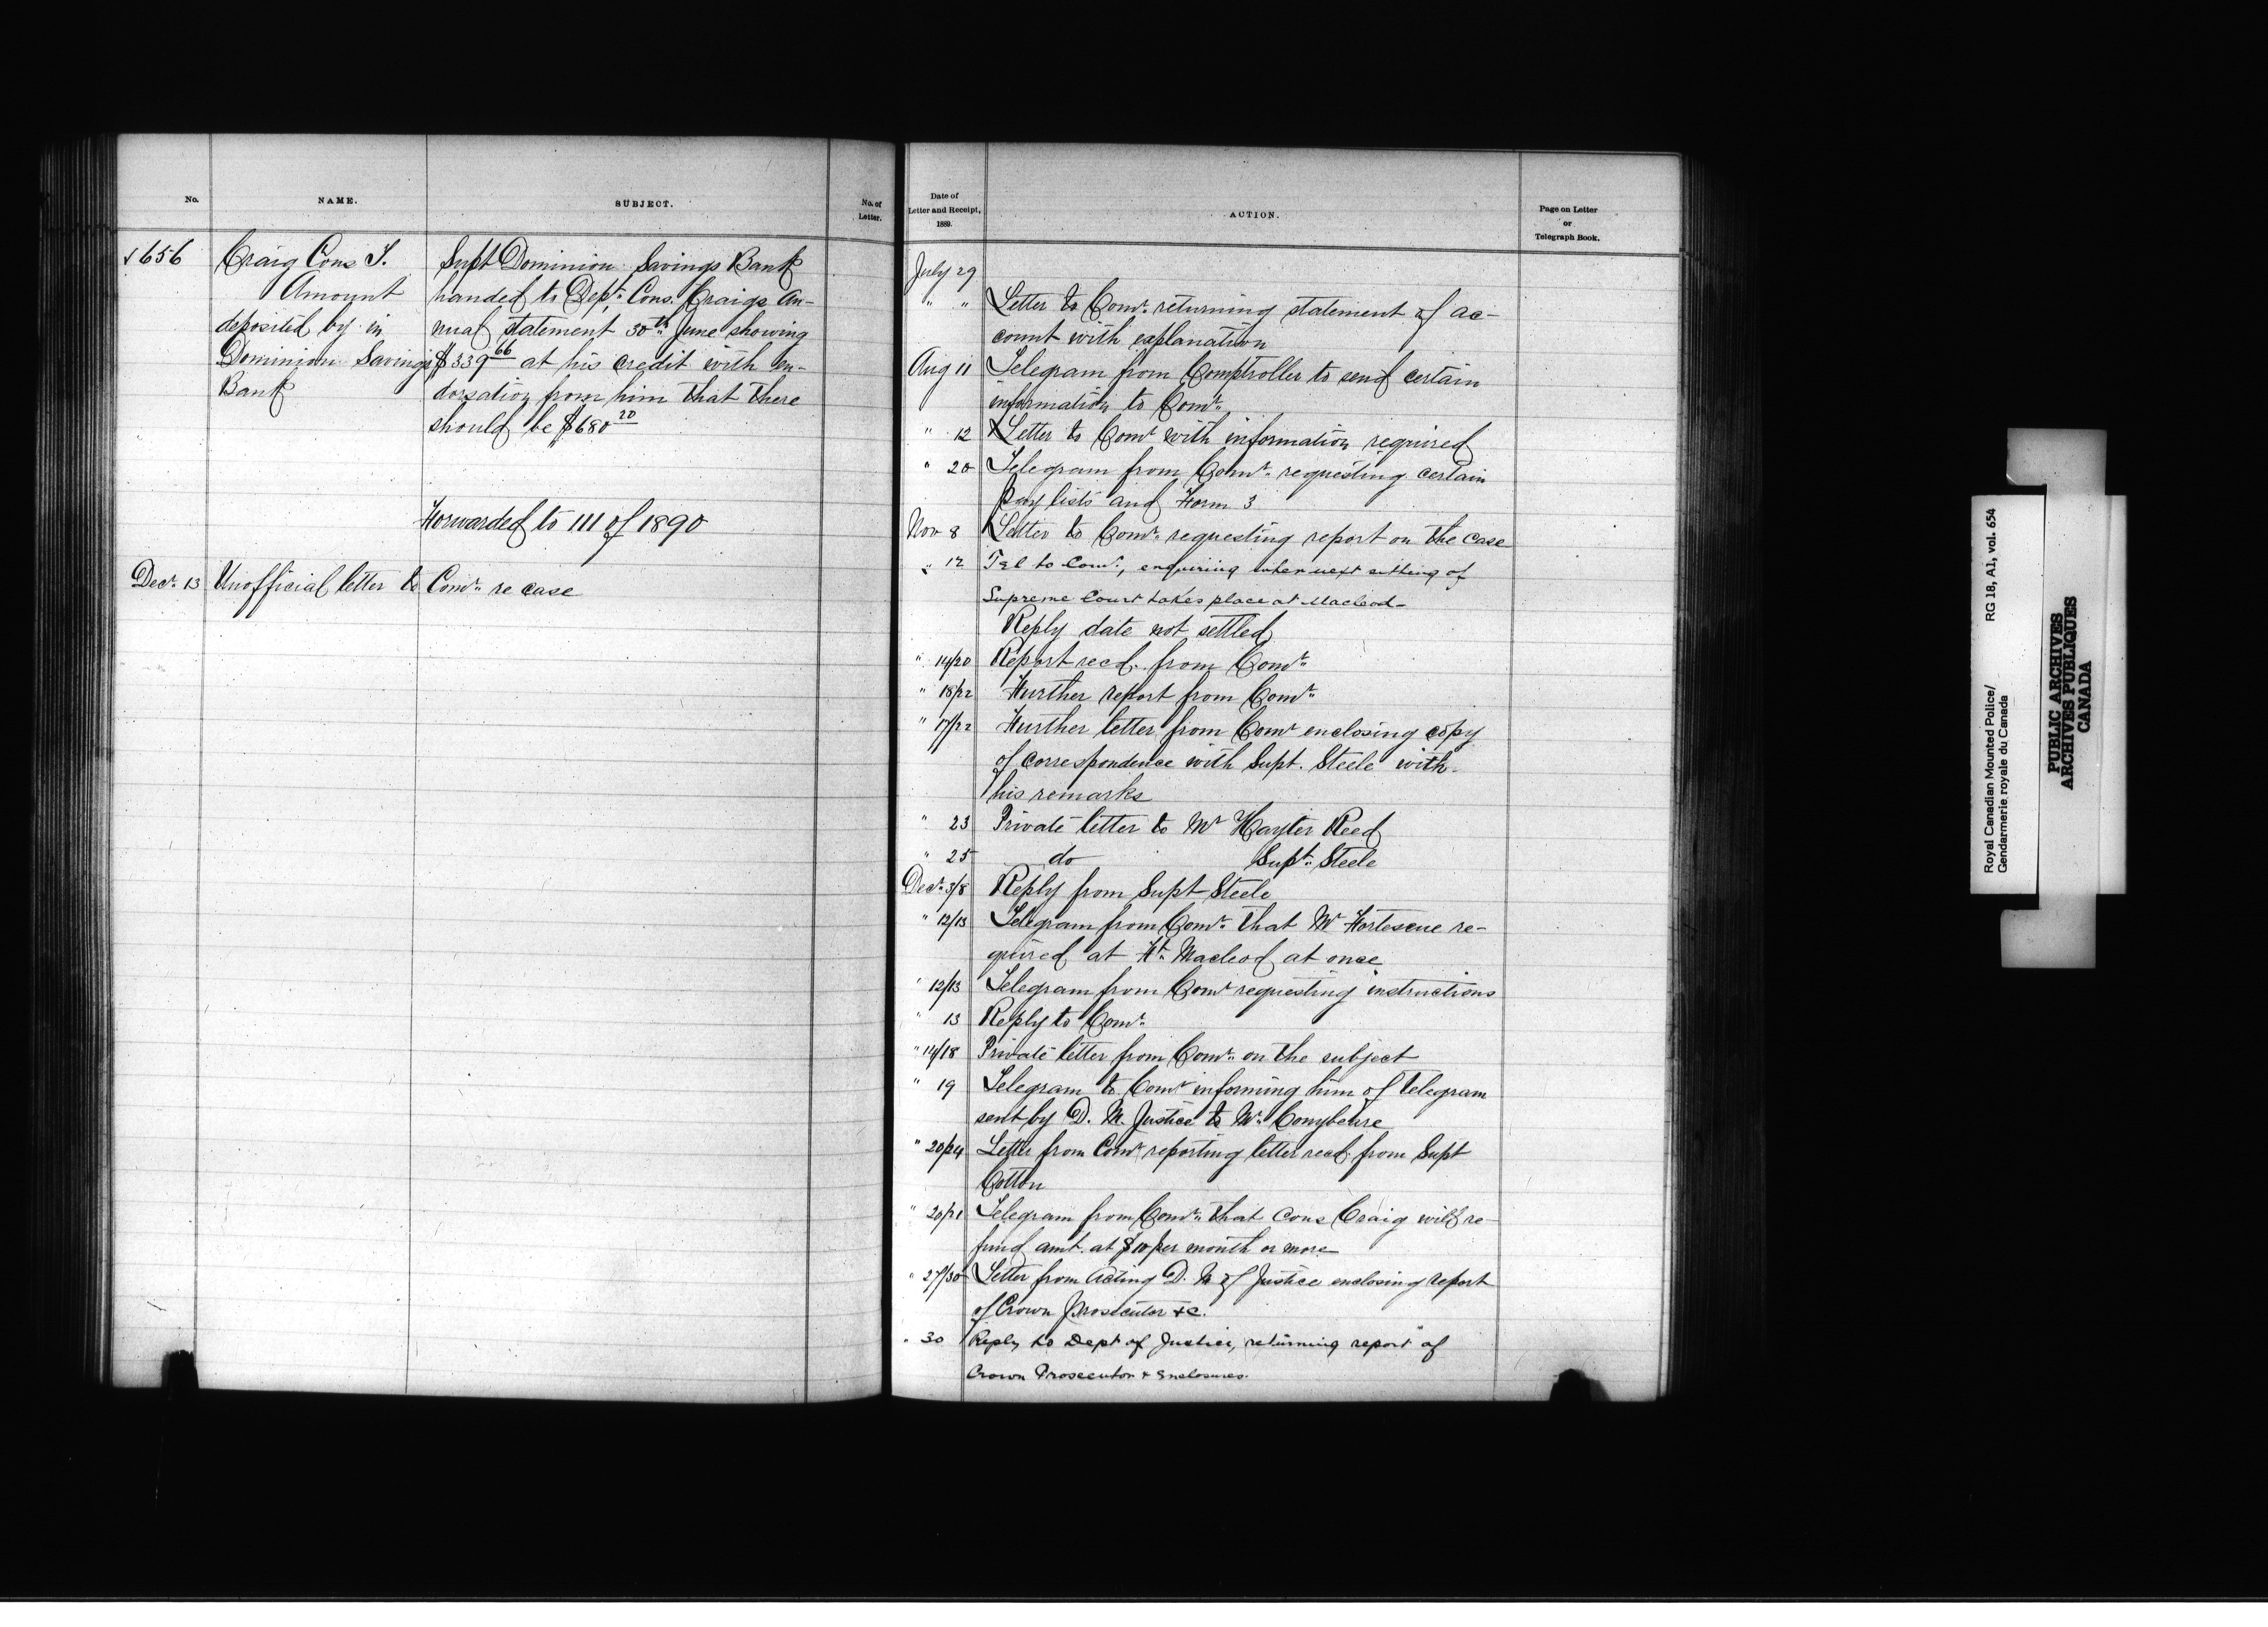 No.
NAME.
SUBJECT.
No. of
Letter.
√ 656
Craig Cons J.
Amount
deposited by in
Dominion Savings
Bank
Supt Dominion Savings Bank
handed to Dept. Cons. Craigs An-
nual statement 30th June showing
$339 66 at his credit with en-
dorsation from him that there
should be $680 20
Forwarded to 111 of 1890
Decr. 13 Unofficial letter to Comr. re case
Date of
Letter and Receipt,
1889.
ACTION.
Page on Letter
or
Telegraph Book.
July 29
" " Letter to Comr. returning statement of ac-
count with explanation
Aug 11 Telegram from Comptroller to send certain
information to Comr.
" 12 Letter to Comr with information required
" 20 Telegram from Comr. requesting certain
Pay lists and Form 3
Nov 8 Letter to Comr. requesting report on the case
" 12 Tel to Comr, enquiring when next sitting of
Supreme Court takes place at Macleod-
Reply date not settled
" 14/20 Report recd. from Comr.
" 18/22 Further report from Comr.
" 17/22 Further letter from Comr enclosing copy
of correspondence with Supt. Steele with
his remarks
" 23 Private letter to Mr Hayter Reed
" 25 do Supt. Steele
Decr. 3/8 Reply from Supt Steele
" 12/13 Telegram from Comr. that Mr Fortescue re-
quired at Ft. Macleod at once
" 12/13 Telegram from Comr requesting instructions
" 13 Reply to Comr.
" 14/18 Private letter from Comr. on the subject
" 19 Telegram to Comr informing him of telegram
sent by D. M. Justice to Mr. Conybeare
" 20/24 Letter from Comr reporting letter recd. from Supt
Cotton
" 20/21 Telegram from Comr. that Cons Craig will re-
fund amt. at $10 per month or more
" 27/30 Letter from Acting D. M of Justice enclosing report
of Crown Prosecutor &c.
" 30 Reply to Dept of Justice, returning report of
Crown Prosecutor & Enclosures.
Royal Canadian Mounted Police/ RG 18, A1, vol. 654
Gendarmerie royale du Canada
PUBLIC ARCHIVES
ARCHIVES PUBLIQUES
CANADA